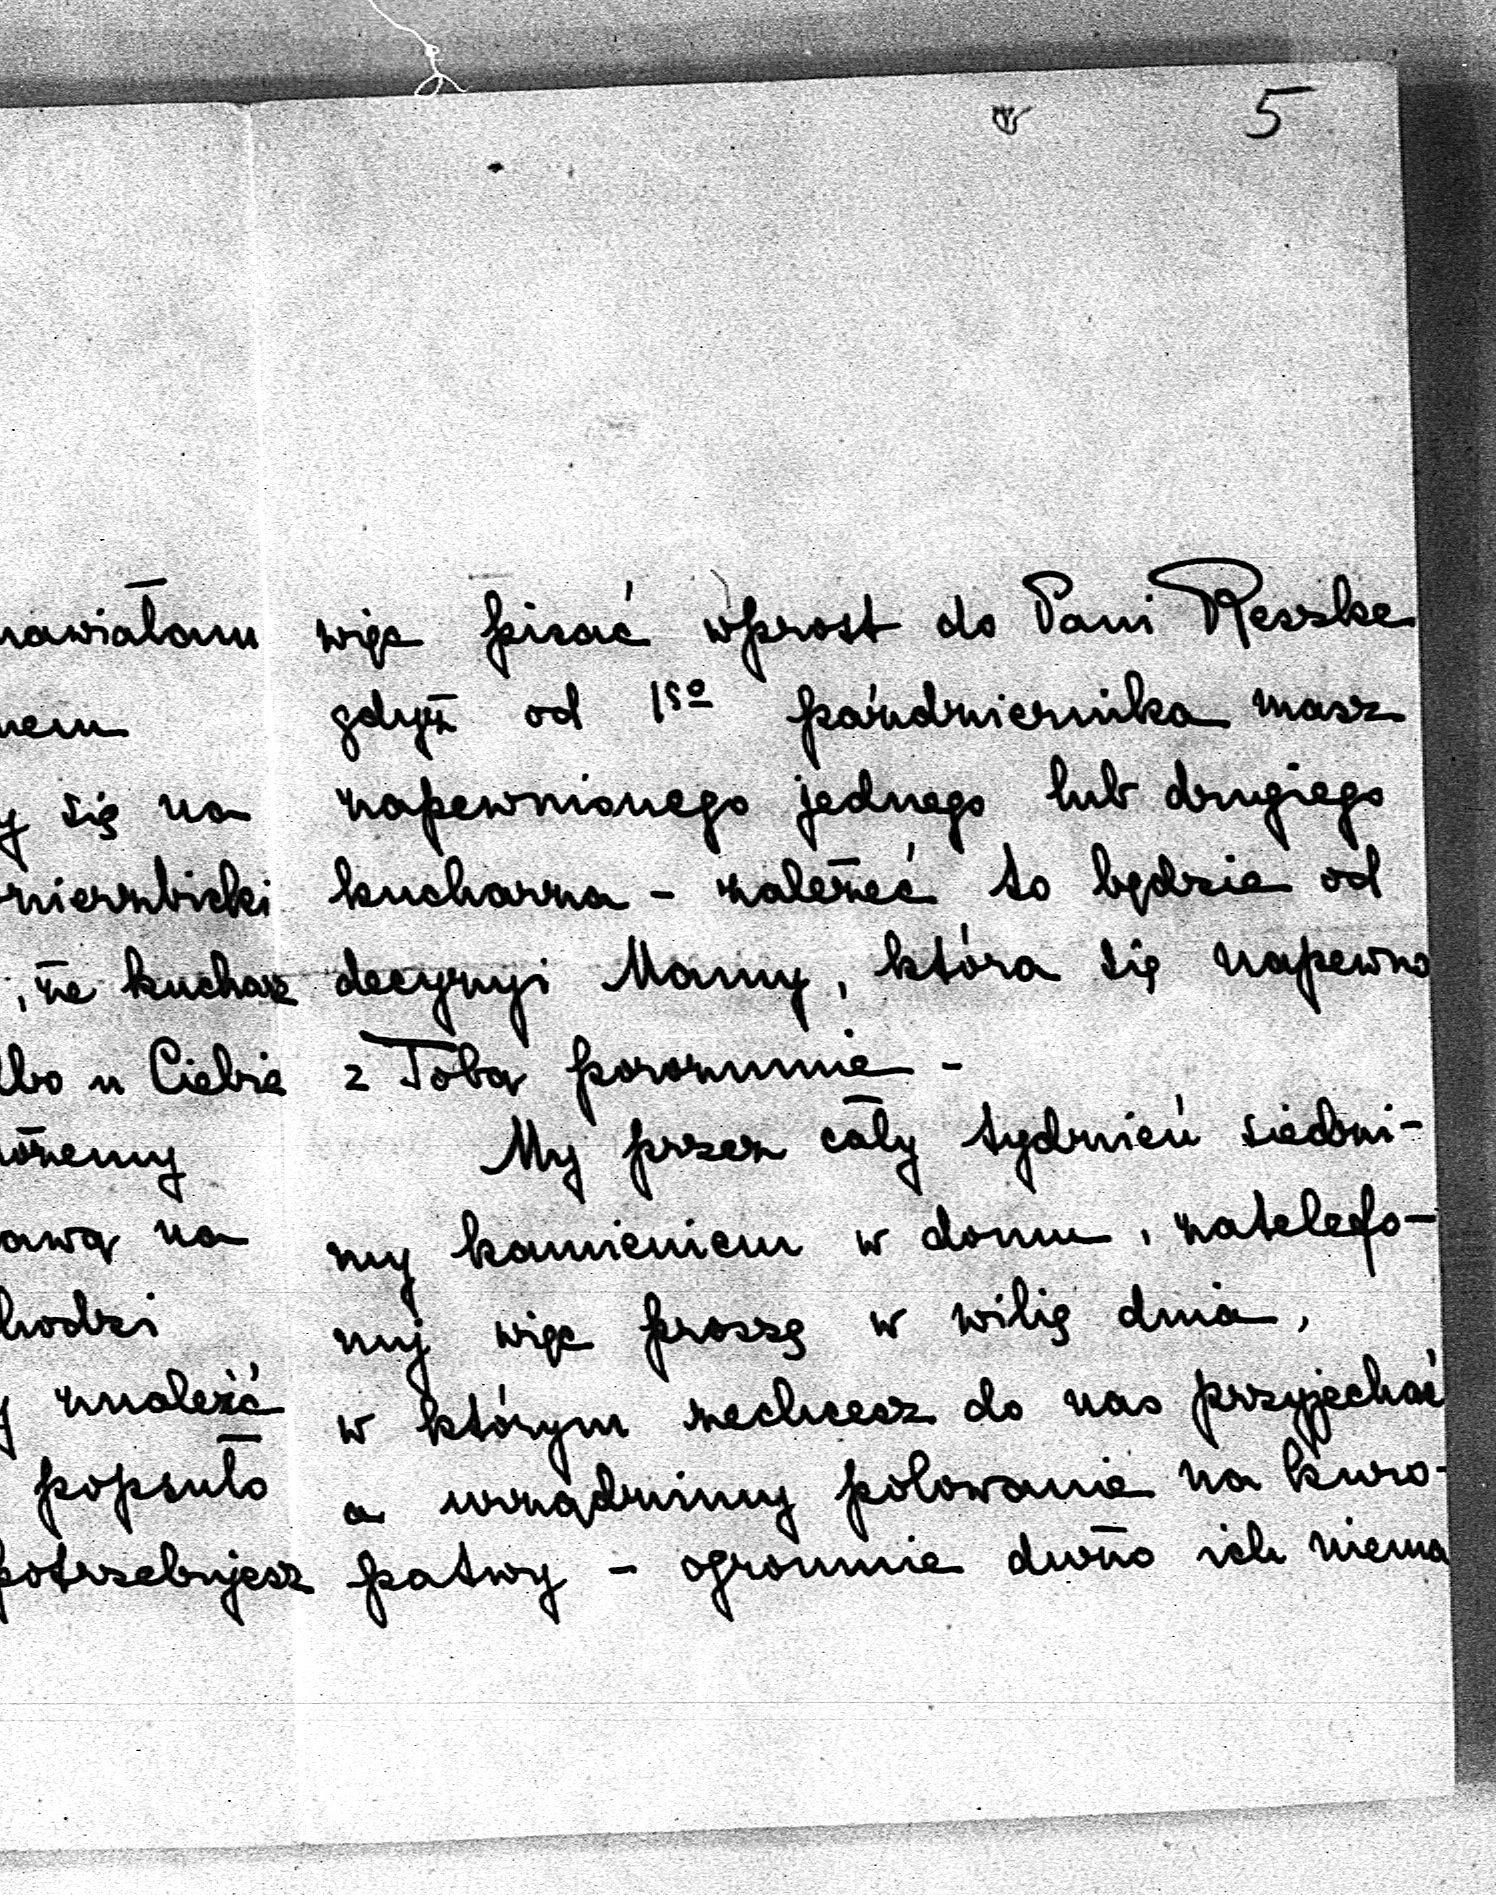 5
nawiałam
nem
y się na
mierzbicki
, że kucharz
lbo u Ciebie
ożemy
awą na
hodzi
y znaleźć
popsuło
potrzebujesz
więc pisać wprost do Pani Reszke
gdyż od 1go października masz
zapewnionego jednego lub drugiego
kucharza - zależeć to będzie od
decyzyi Mamy, która się napewno
z Tobą porozumie -
My przez cały tydzień siedzi-
my kamieniem w domu, zatelefo-
nuj więc proszę w wilię dnia,
w którym zechcesz do nas przyjechać
a urządzimy polowanie na kuro-
patwy - ogromnie dużo ich niema